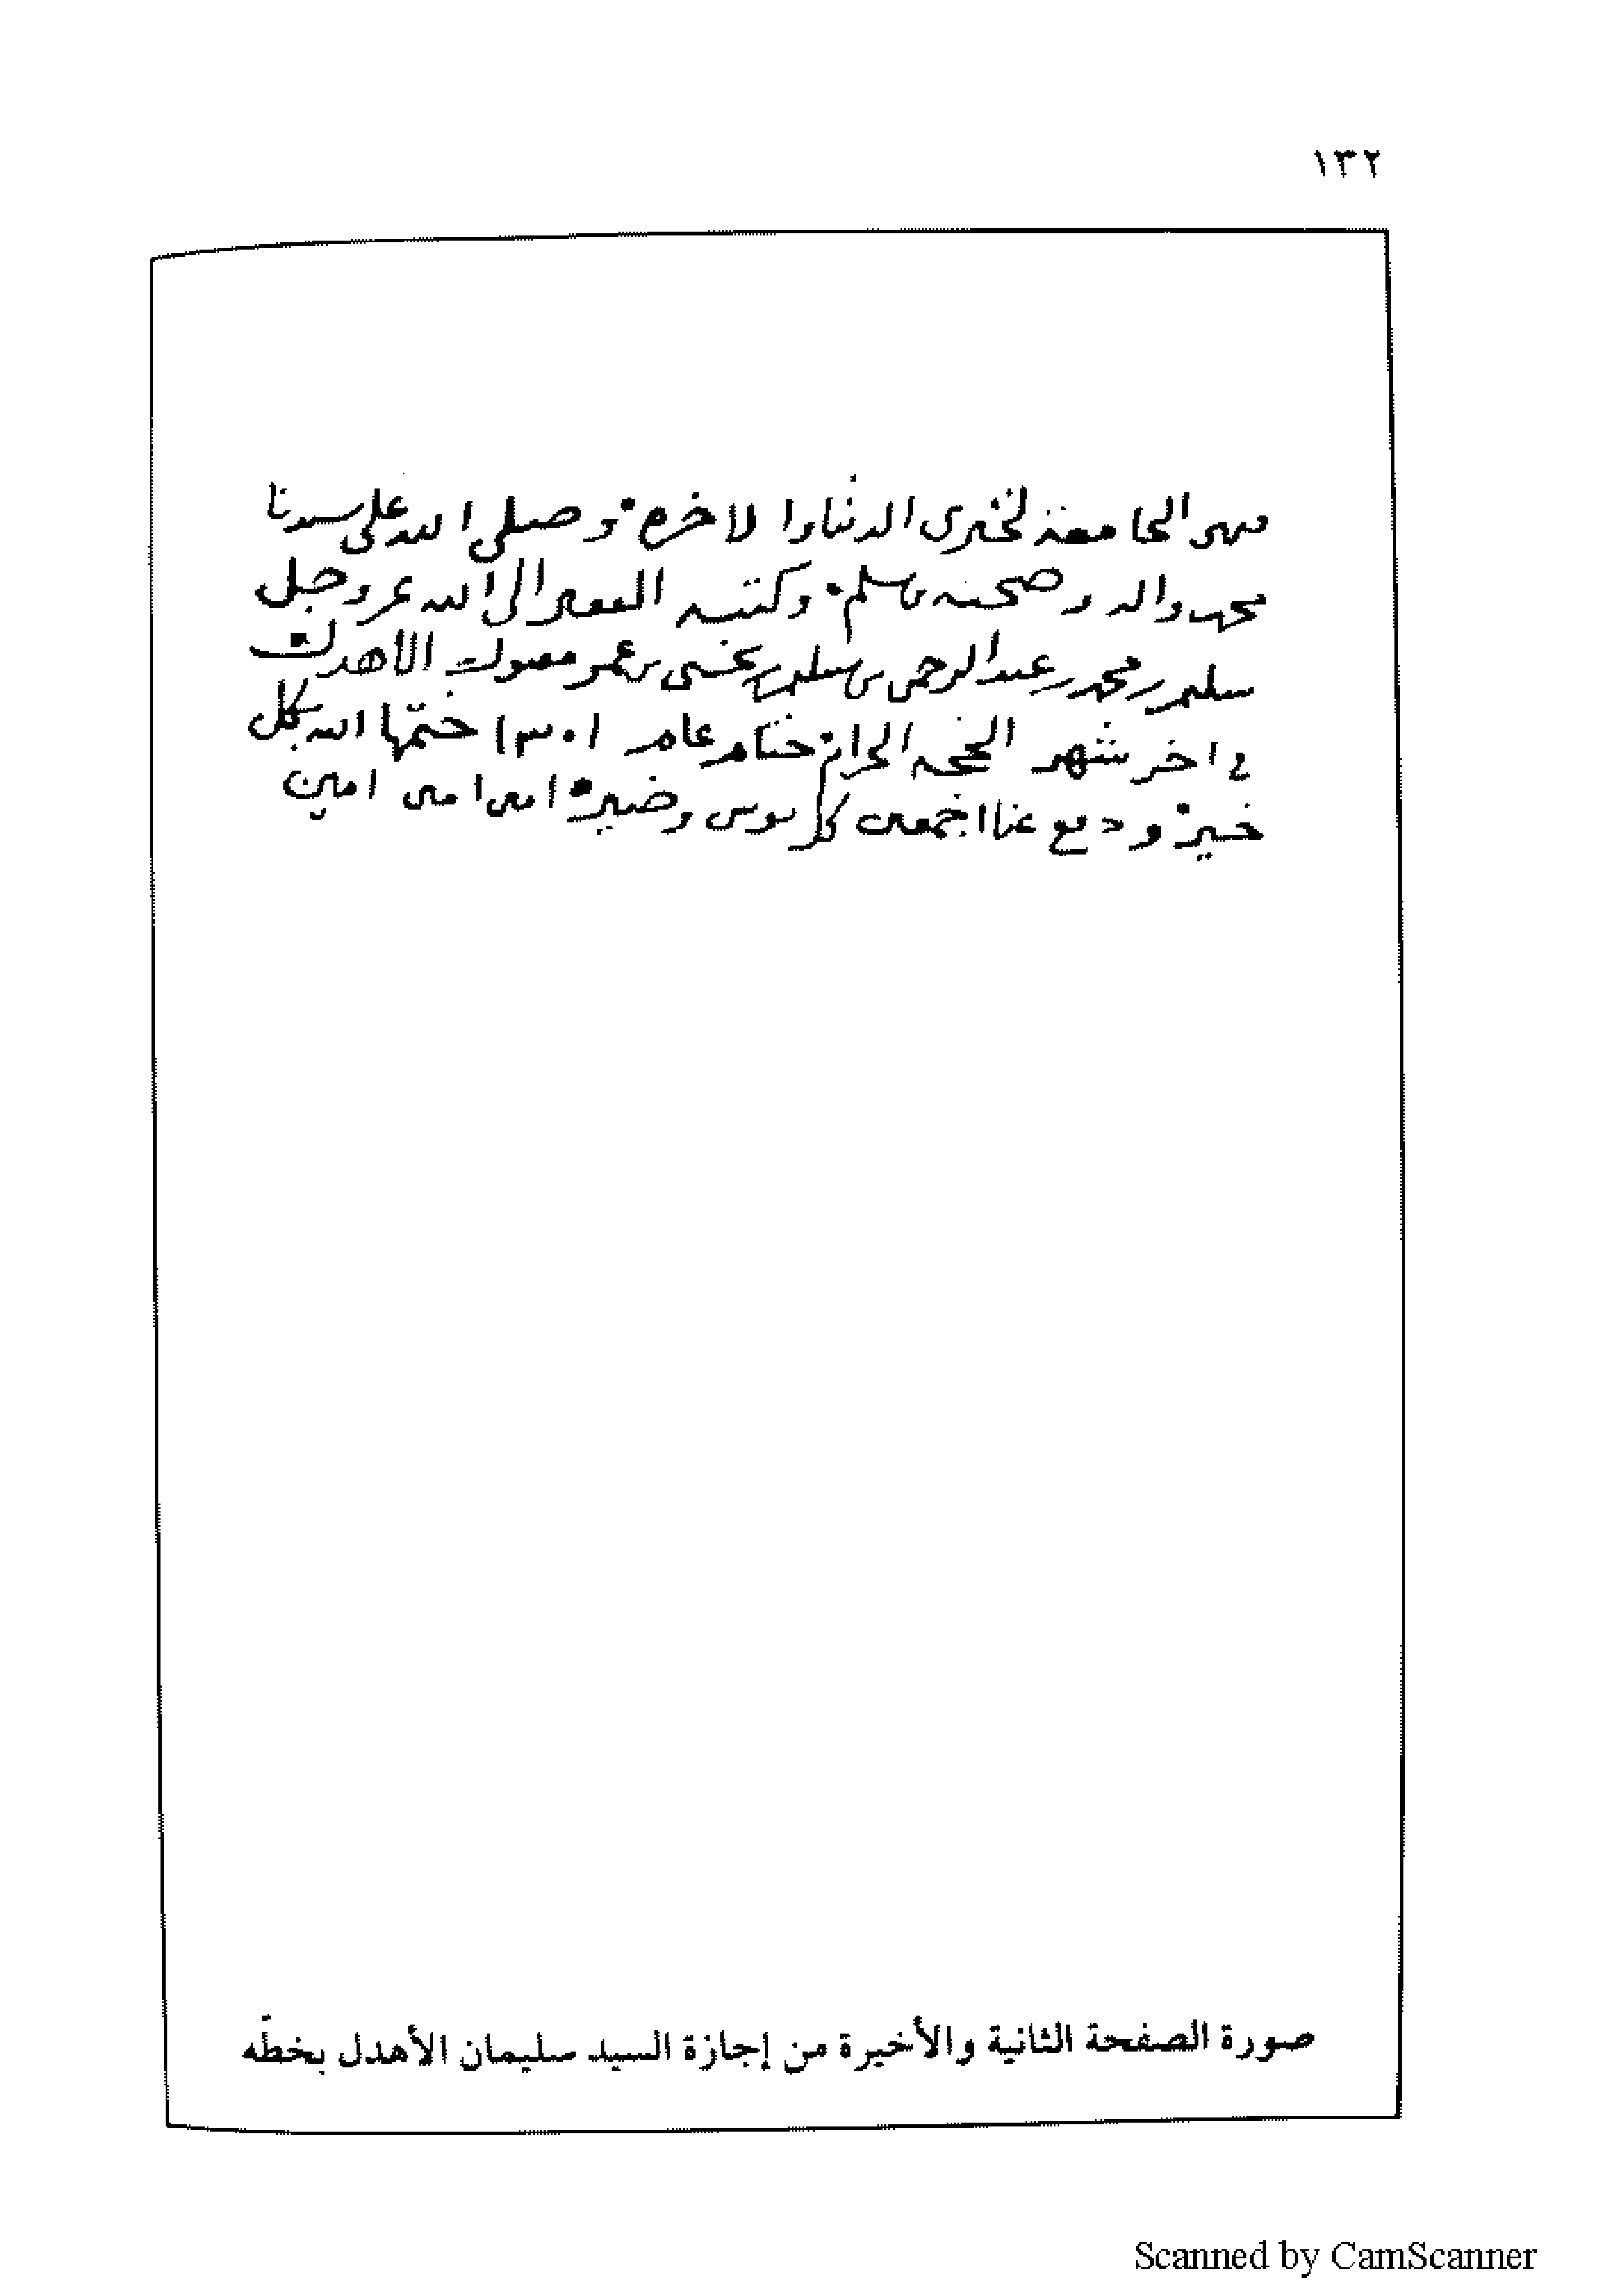 ١٣٢
فهى الجامعة لخيرى الدنيا والاخره وصلى الله على سيدنا
محمد واله وصحبه وسلم وكتبه الفقير الى الله عز وجل
سليمن بن محمد بن عبد الرحمن بن سليمن بن يحيى بن عمر مقبول الاهدل
في اخر شهر الحجه الحرام ختام عام ١٣٠١ ختمها الله بكل
خير ودفع عنا اجمعين كل بوس وضير امين امين امين
صورة الصفحة الثانية والأخيرة من إجازة السيد سليمان الأهدل بخطّه
Scanned by CamScanner